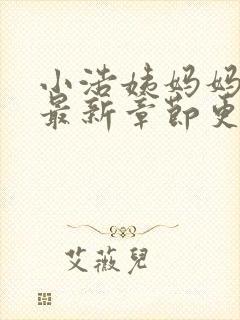 小浩姨妈妈
最新章節更
艾薇兒